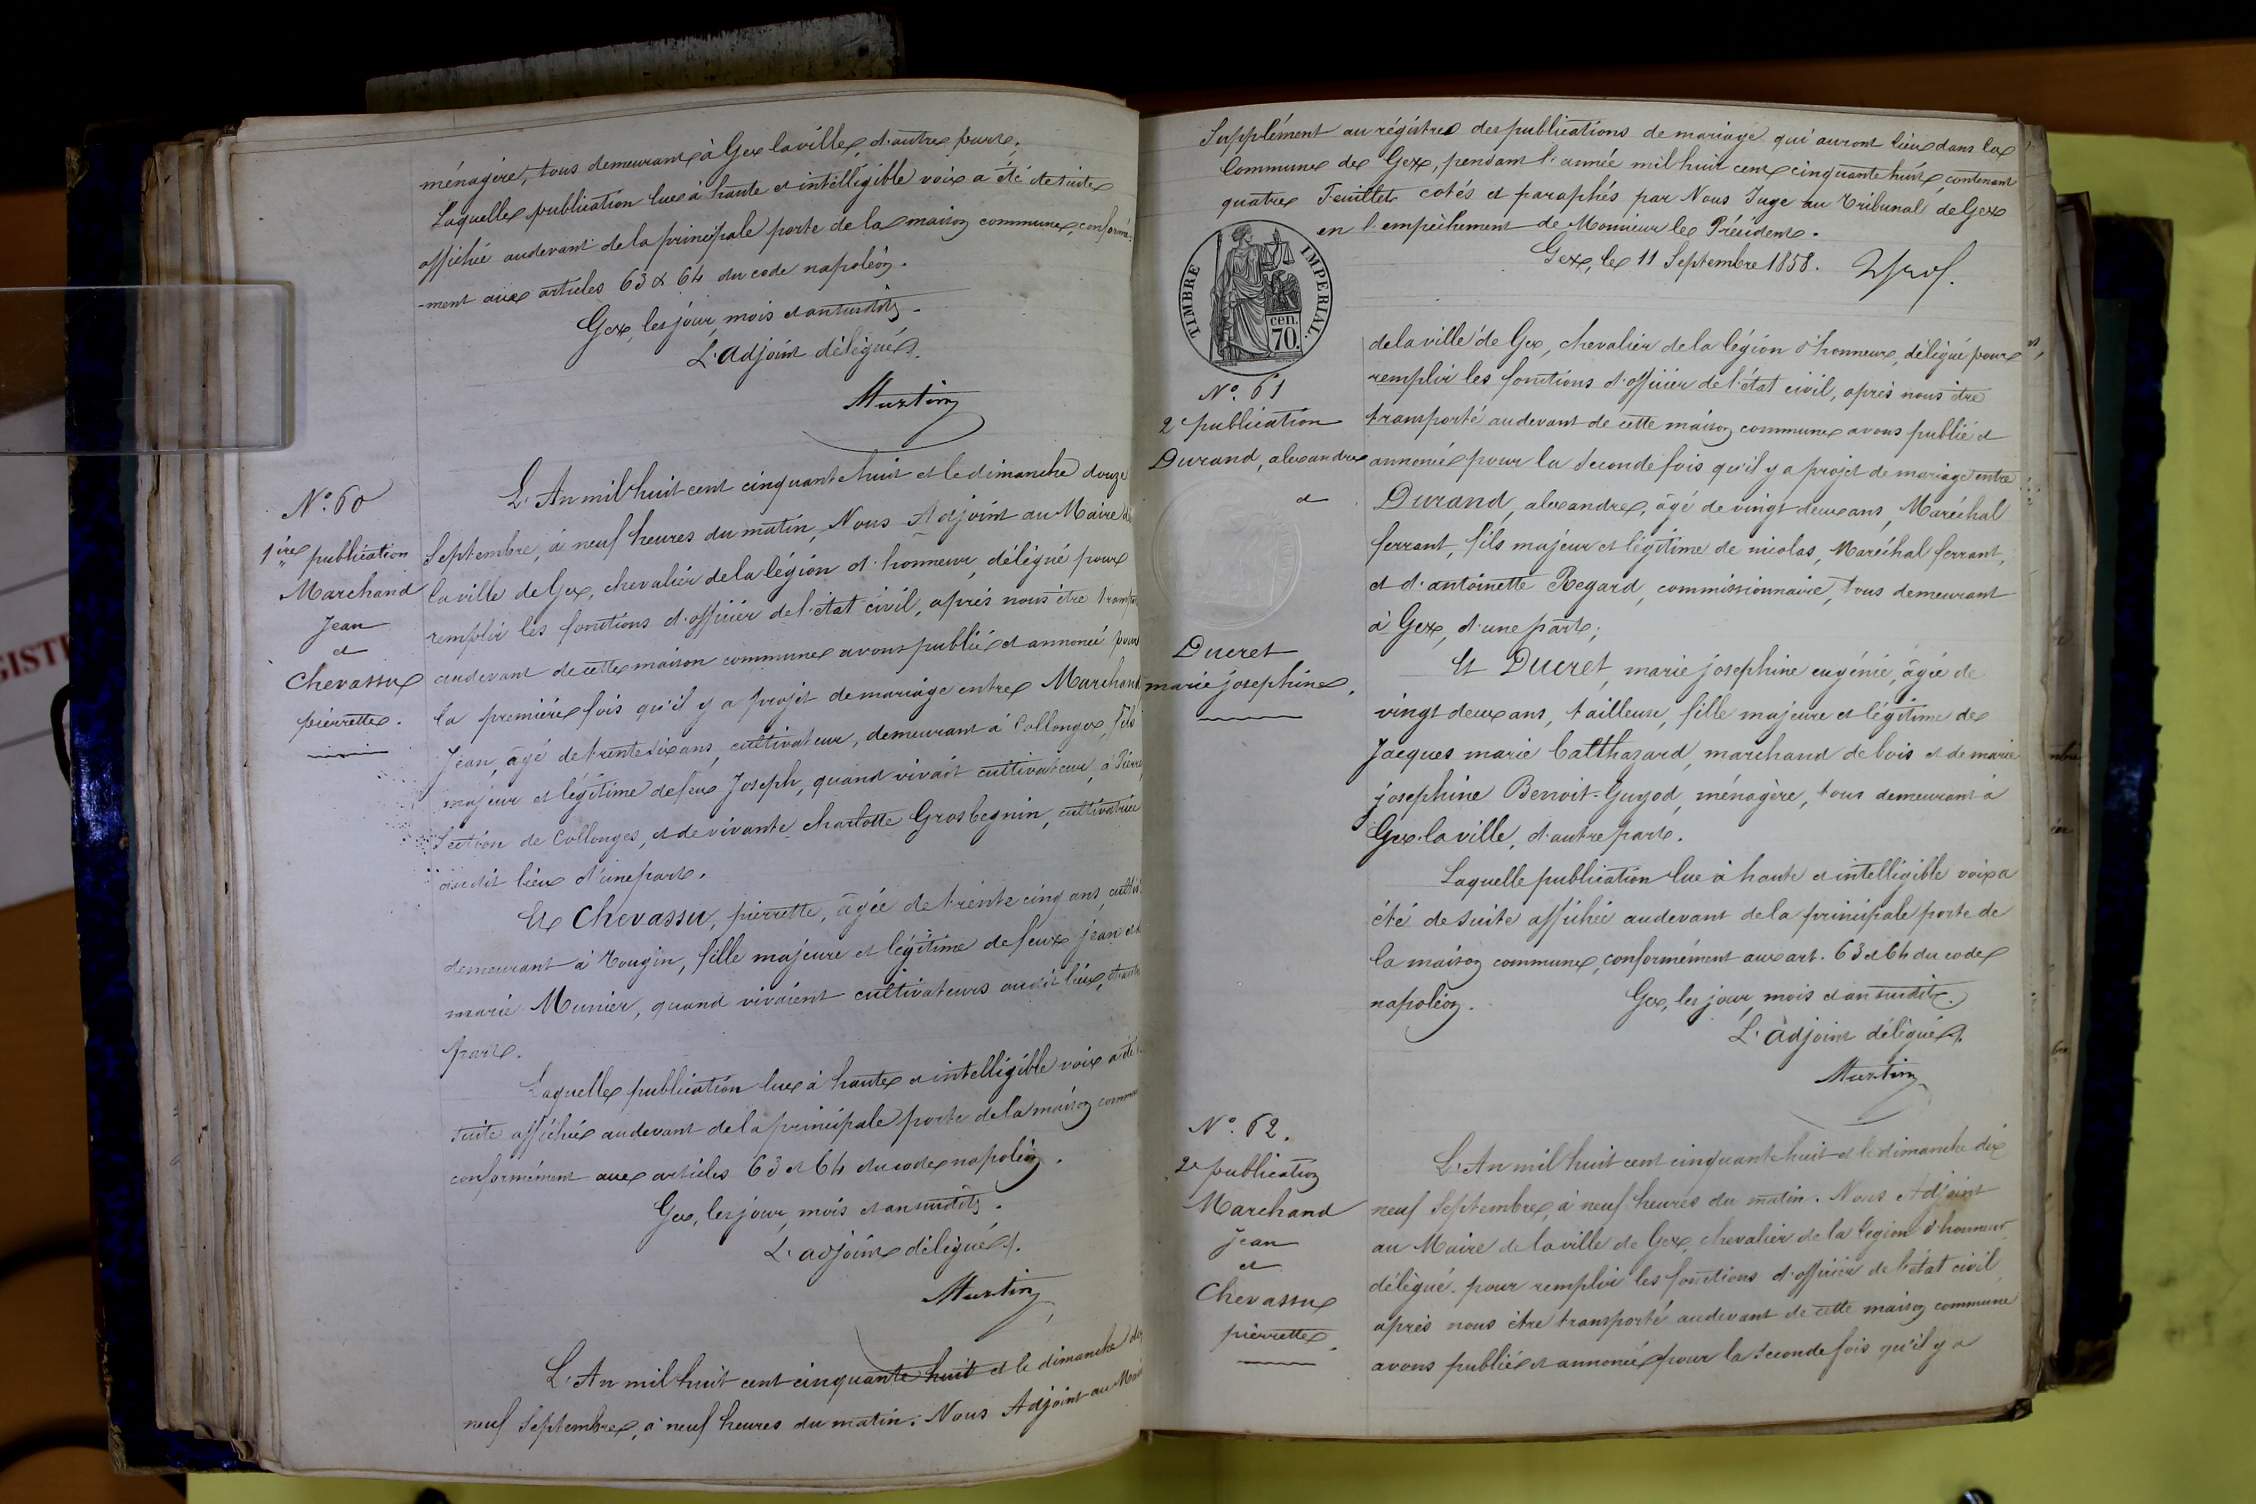 ménagère, tous demeurant à Gex la ville, d'autre part.
Laquelle publication lue à haute et intelligible voix a été de suite
affichée audevant de la principale porte de la maison commune, conformé-
-ment aux articles 63 & 64 du code napoléon.
Gex, les jour, mois et an susdits.
L'adjoint délégué.
Martin
N.° 60
1ère publication
Marchand
Jean
et
Chevassu
pierrette.
L'An mil huit cent cinquante huit et le dimanche douze
Septembre, à neuf heures du matin, Nous Adjoint au Maire de
la ville de Gex, chevalier de la légion d'honneur, délégué pour
remplir les fonctions d'officier de l'état civil, après nous être transporté
audevant de cette maison commune avons publié et annoncé pour
la première fois qu'il y a projet de mariage entre Marchand
Jean, âgé de trente six ans, cultivateur, demeurant à Collonges, fils
majeur et légitime de feu Joseph, quand vivait cultivateur, à Pierre,
Section de Collonges, et de vivante charlotte Grosbegnin, cultivatrice
audit lieu d'une part.
Et Chevassu, pierrette, âgée de trente cinq ans,
demeurant à Tougin, fille majeure et légitime de feux jean et de
marie Munier, quand vivaient cultivateurs audit lieu, d'autre
part.
Laquelle publication lue à haute et intelligible voix a été
suite affichée audevant de la principale porte de la maison commune
conformément aux articles 63 et 64 du code napoléon.
Gex, les jour, mois et an susdits.
L'adjoint délégué.
Martin
L'An mil huit cent cinquante huit et le dimanche dix
neuf Septembre, à neuf heures du matin. Nous Adjoint au Maire
Supplément au régistre des publications de mariage qui auront lieu dans la
Commune de Gex, pendant l'année mil huit cent cinquante huit, contenant
quatre Feuillets cotés et paraphés par Nous Juge au Tribunal de Gex
en l'empêchement de Monsieur le Président.
Gex, le 11 Septembre 1858.
TIMBRE IMPERIAL.
cen.
70.
N.° 61
2e publication
Durand, alexandre
et
Ducret
marie josephine.
de la ville de Gex, chevalier de la légion d'honneur, délégué pour
remplir les fonctions d'officier de l'état civil, après nous être
transporté audevant de cette maison commune avons publié et
annoncé pour la seconde fois qu'il y a projet de mariage entre
Durand, alexandre, âgé de vingt deux ans, Maréchal
ferrant, fils majeur et légitime de nicolas, Maréchal ferrant,
et d'antoinette Regard, commissionnaire, tous demeurant
à Gex, d'une part;
Et Ducret, marie josephine eugénie, âgée de
vingt deux ans, tailleuse, fille majeure et légitime de
Jacques marie balthazard, marchand de bois et de marie
josephine Benoit-Guyod, ménagère, tous demeurant à
Gex la ville, d'autre part.
Laquelle publication lue à haute et intelligible voix a
été de suite affichée audevant de la principale porte de
la maison commune, conformément aux art. 63 et 64 du code
napoléon. Gex, les jour, mois et an susdits.
L'adjoint délégué.
Martin
N.° 62.
2e publication
Marchand
Jean
et
Chevassu
pierrette.
L'An mil huit cent cinquante huit et le dimanche dix
neuf Septembre, à neuf heures du matin. Nous Adjoint
au Maire de la ville de Gex, chevalier de la légion d'honneur
délégué pour remplir les fonctions d'officier de l'état civil,
après nous être transporté audevant de cette maison commune
avons publié et annoncé pour la seconde fois qu'il y a